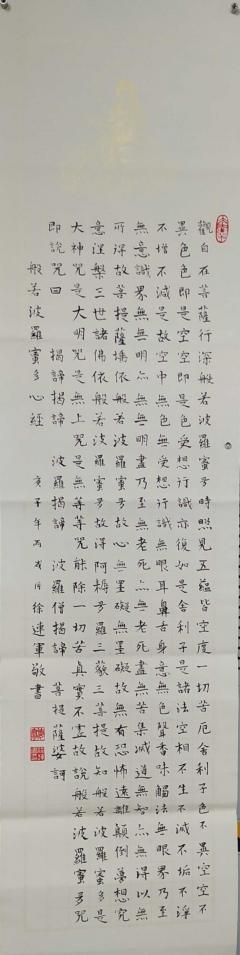 觀自在菩薩行深般若波羅蜜多時照見五蘊皆空度一切苦厄舍利子色不異空空不
異色色即是空空即是色受想行識亦復如是舍利子是諸法空相不生不滅不垢不淨
不增不減是故空中無色無受想行識無眼耳鼻舌身意無色聲香味觸法無眼界乃至
無意識界無無明亦無無明盡乃至無老死亦無老死盡無苦集滅道無智亦無得以無
所得故菩提薩埵依般若波羅蜜多故心無罣礙無罣礙故無有恐怖遠離顛倒夢想究
竟涅槃三世諸佛依般若波羅蜜多故得阿耨多羅三藐三菩提故知般若波羅蜜多是
大神咒是大明咒是無上咒是無等等咒能除一切苦真實不虛故說般若波羅蜜多咒
即說咒曰 揭諦揭諦 波羅揭諦 波羅僧揭諦 菩提薩婆訶
般若波羅蜜多心經 庚子年丙戌月徐連軍敬書